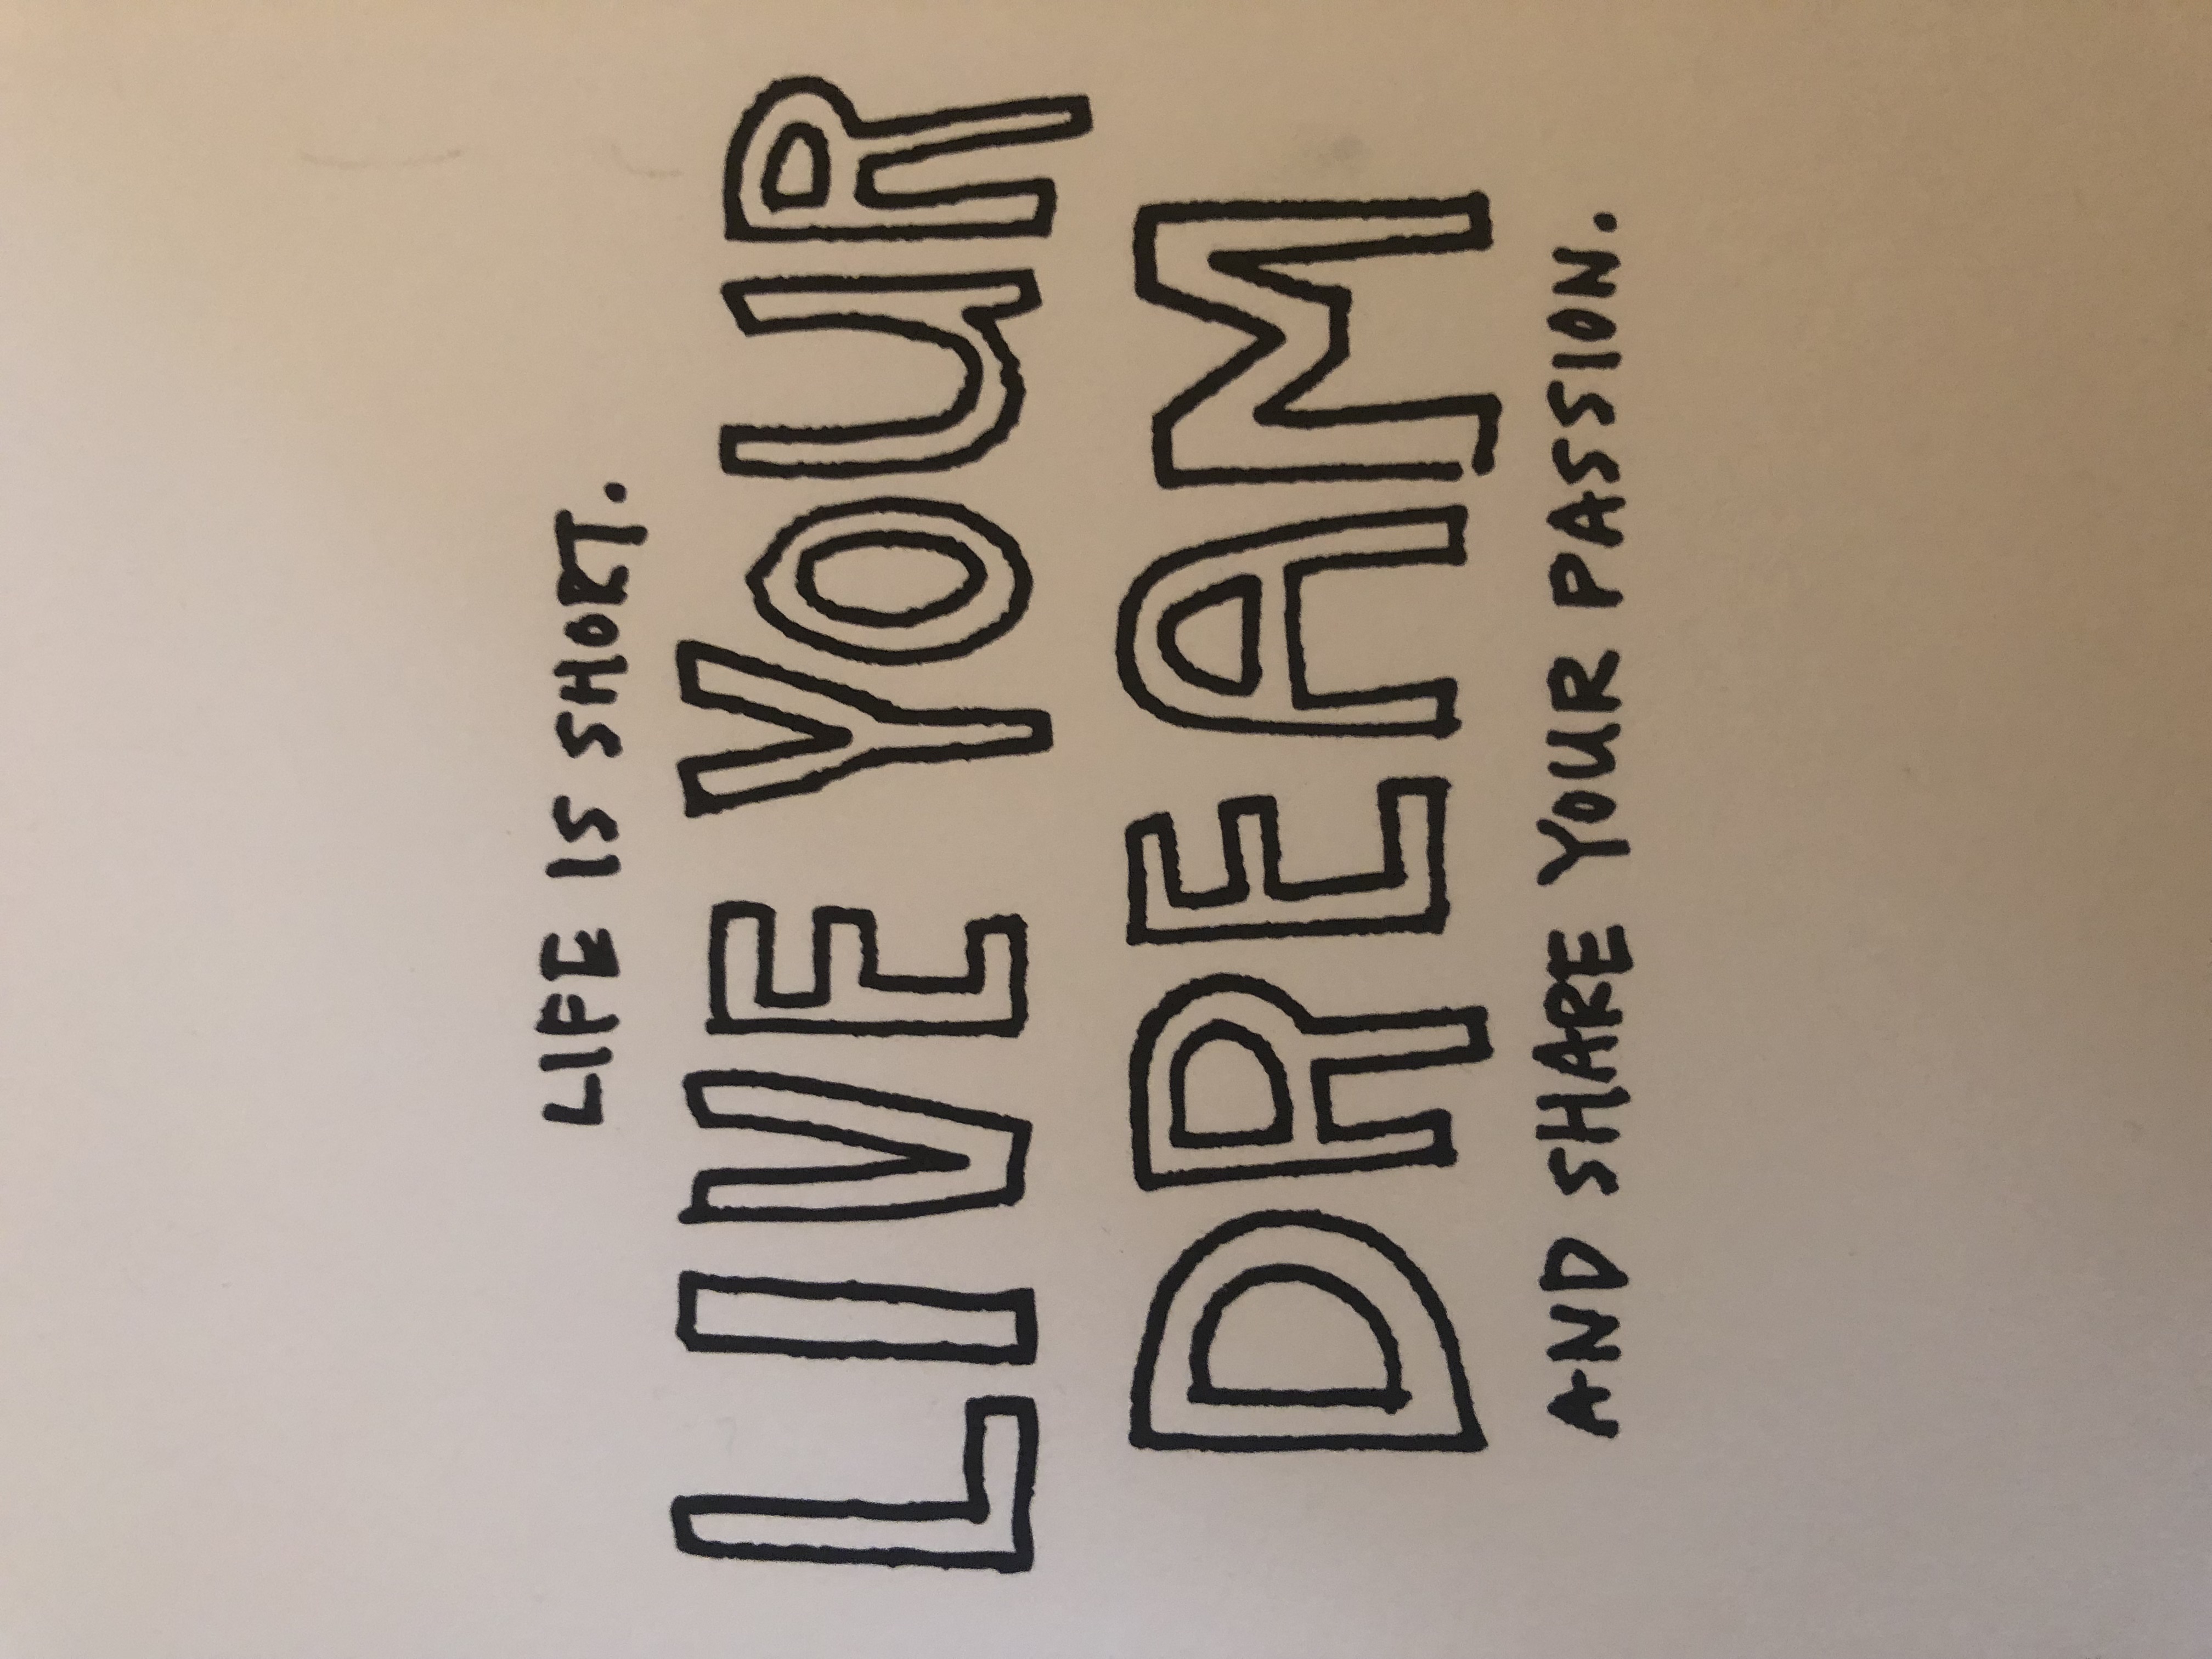 LIFE IS SHORT.
LIVE YOUR
DREAM
AND SHARE YOUR PASSION.